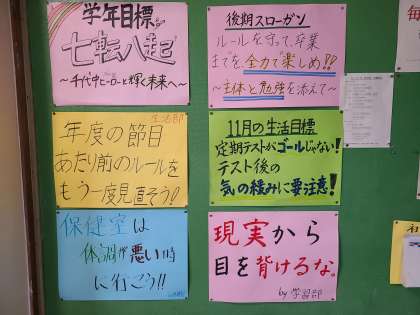 学年目標
七転八起
～千代中ヒーローと輝く未来へ～
後期スローガン
ルールを守って、卒業
までを、全力で楽しめ!!
～主体と勉強を添えて～
生活部
年度の節目
あたり前のルールを
もう一度見直そう!
11月の生活目標
定期テストがゴールじゃない!
テスト後の
気の緩みに要注意!
保健室は
体調が悪い時
に行こう!!
現実から
目を背けるな。
by 学習部